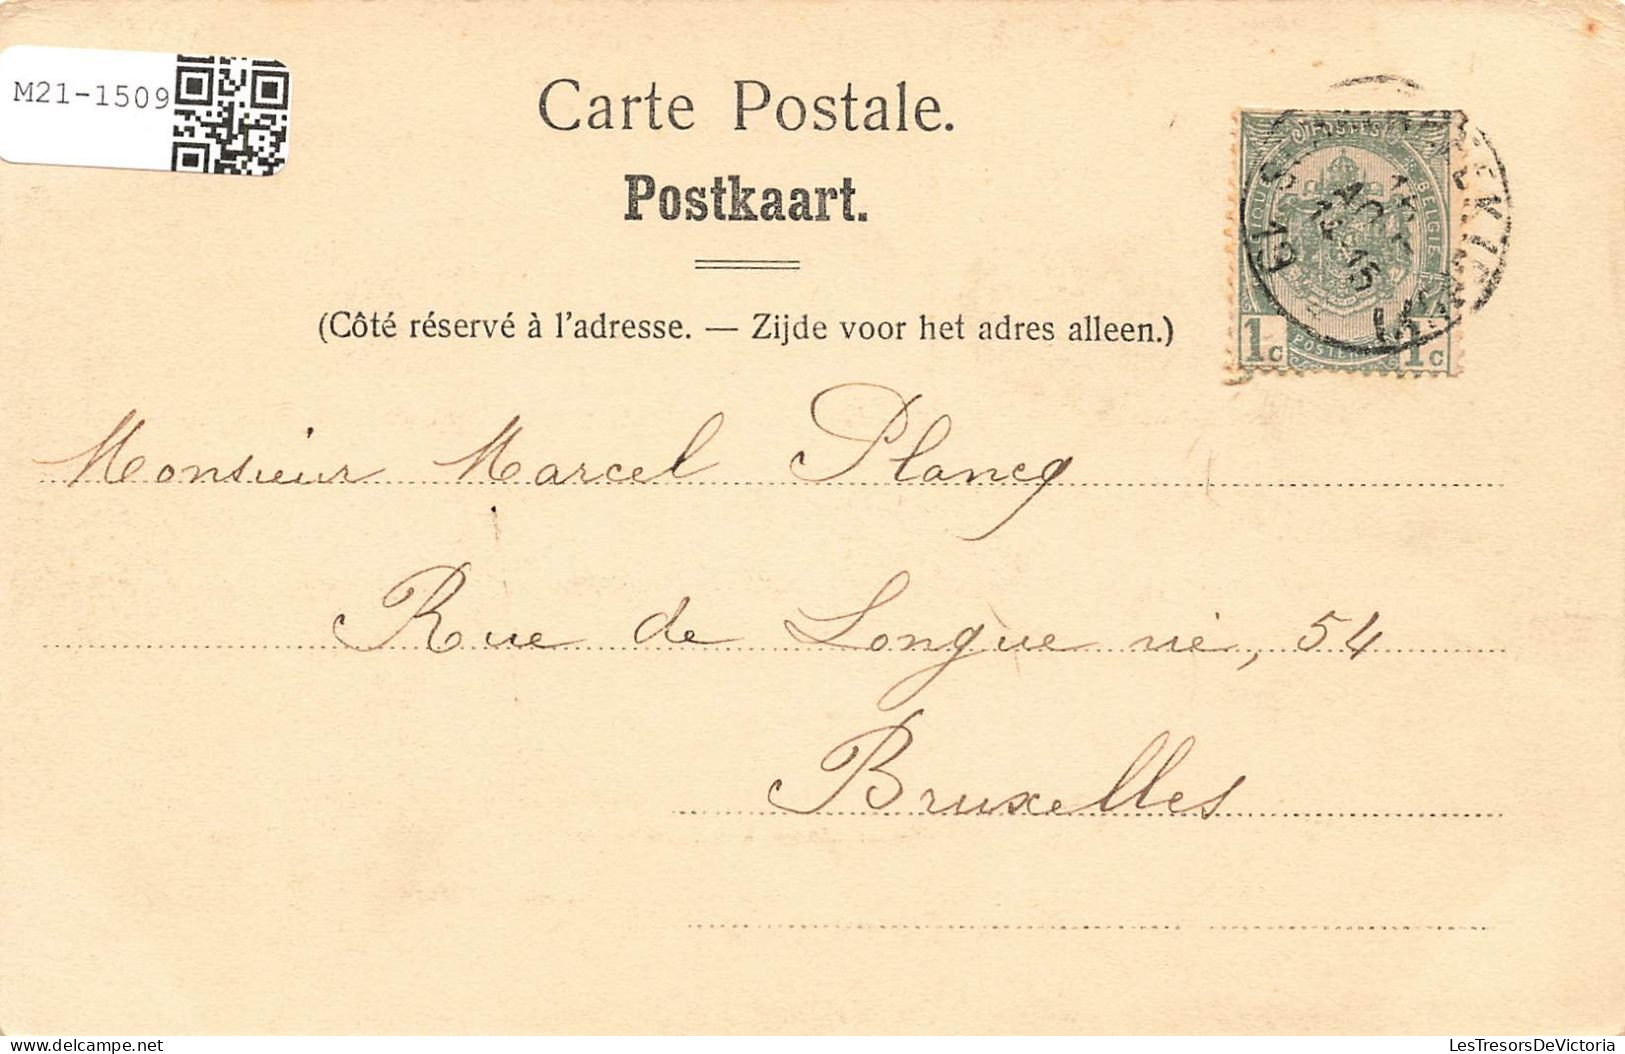 M21-1509
Carte Postale.
Postkaart.
(Côté réservé à l'adresse. — Zijde voor het adres alleen.)
POSTES
BELGIE
1c 1c
Monsieur Marcel Plancq
Rue de Longue vie, 54
Bruxelles
LesTresorsDeVictoria